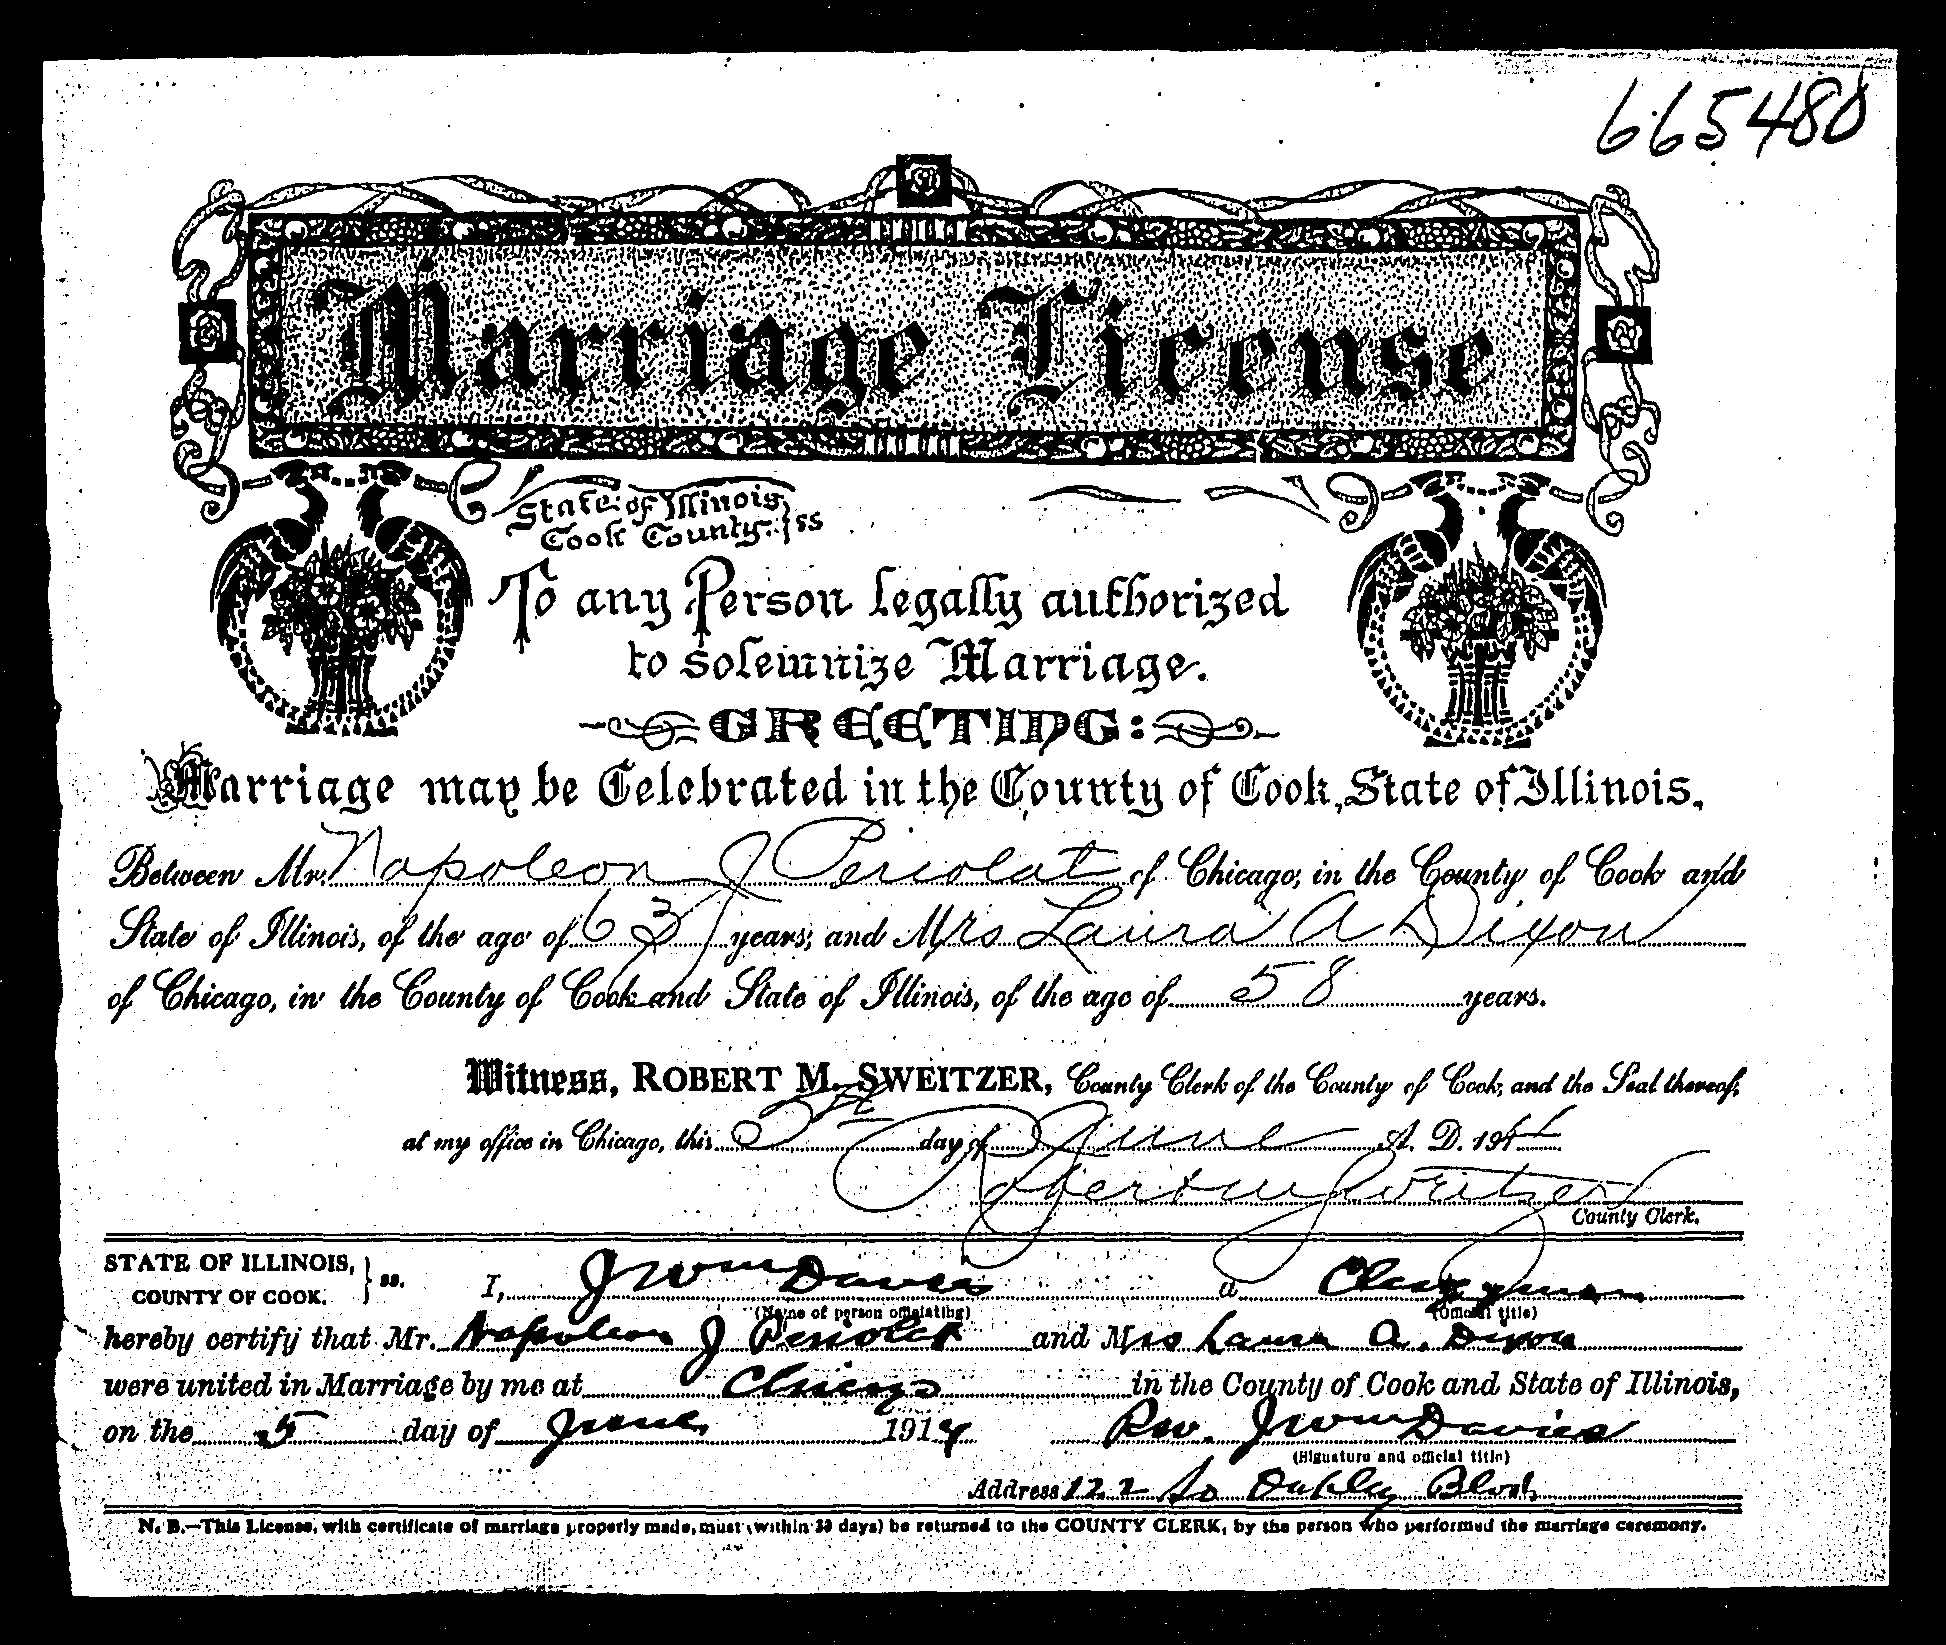 665480
Marriage License
State of Illinois
Cook County. } ss
To any Person legally authorized
to solemnize Marriage.
GREETING:
Marriage may be Celebrated in the County of Cook, State of Illinois,
Between Mr. Napoleon J Periolat of Chicago, in the County of Cook and
State of Illinois, of the age of 63 years, and Mrs Laura A Dixon
of Chicago, in the County of Cook and State of Illinois, of the age of 58 years.
Witness, ROBERT M. SWEITZER, County Clerk of the County of Cook, and the Seal thereof,
at my office in Chicago, this 5th day of June A. D. 1914
Robert M Sweitzer
County Clerk.
STATE OF ILLINOIS, } ss.
COUNTY OF COOK.
I, J Wm Davies a Clergyman
(Name of person officiating) (Official title)
hereby certify that Mr. Napoleon J Periolat and Mrs Laura A. Dixon
were united in Marriage by me at Chicago in the County of Cook and State of Illinois,
on the 5 day of June 1914 Rev. J Wm Davies
(Signature and official title)
Address 122 So Oakley Blvd
N. B.—This License, with certificate of marriage properly made, must (within 30 days) be returned to the COUNTY CLERK, by the person who performed the marriage ceremony.